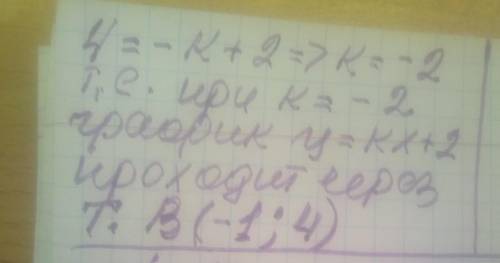 4 = -к + 2 => к = -2
т.е. при к = -2
график у = кх+2
проходит через
т. В (-1; 4)